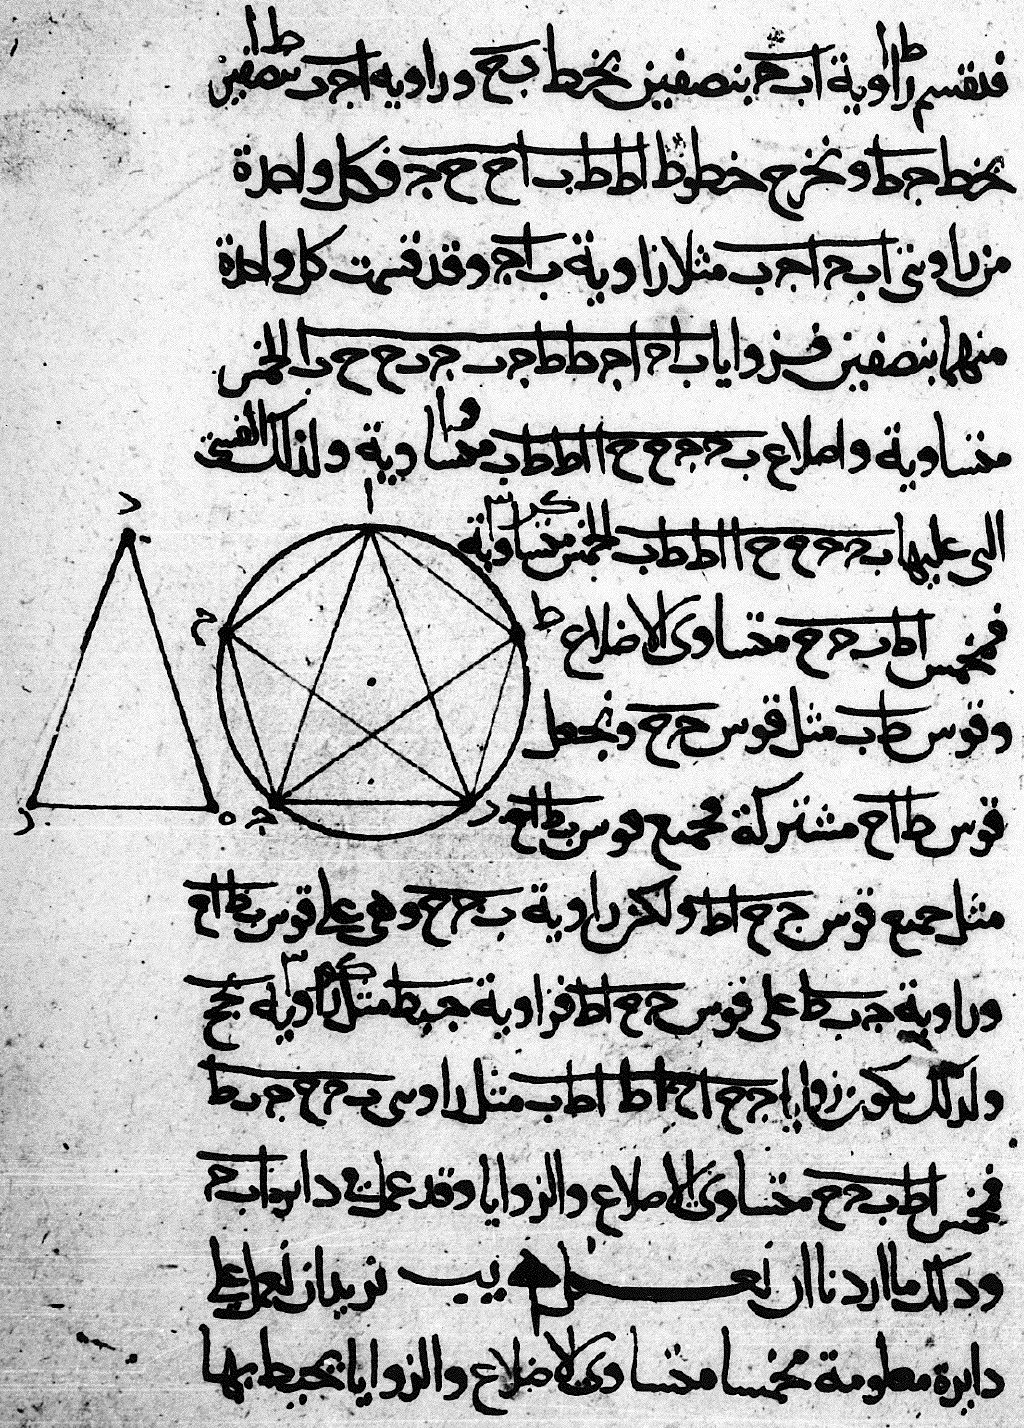 فنقسم زاوية ا ب ح بنصفين بخط ب ح وزاوية ا ج ب بنصفين
بخط ج ط ونخرج خطوط ا ط ط ب ا ح ح ج فكل واحدة
من زاويتي ا ب ح ا ج ب مثلا زاوية ب ا ج وقد قسمت كل واحدة
منهما بنصفين فزوايا ب ا ح ا ج ط ط ج ب ج ب ح ح ب ا الخمس
متساوية واضلاع ب ح ح ح ح ا ا ط ط ب متساوية ولذلك القسي
التي عليها ب ح ح ح ح ا ا ط ط ب الخمس متساوية
فمخمس ا ط ب ح ح متساوى الاضلاع
وقوس ط ب مثل قوس ح ح ونجعل
قوس ط ا ح مشتركة فجميع قوس ب ط ا ح
مثل جميع قوس ج ح ا ط ولكن زاوية ب ح ح وهي على قوس ب ط ا ح
وزاوية ج ب ط على قوس ح ح ا ط فزاوية ج ب ط مثل زاوية ب ح ح
ولذلك يكون زوايا ج ح ا ح ا ط ا ط ب مثل زاويتي ب ح ح ج ب ط
فمخمس ا ط ب ح ح متساوى الاضلاع والزوايا وقد عمل في دايرة ا ب ح
وذلك ما اردنا ان نعمل يب نريد ان نعمل على
دايرة معلومة مخمسا متساوى الاضلاع والزوايا يحيط بها
د
ا
ح
ط
ز
ه
ج
ب